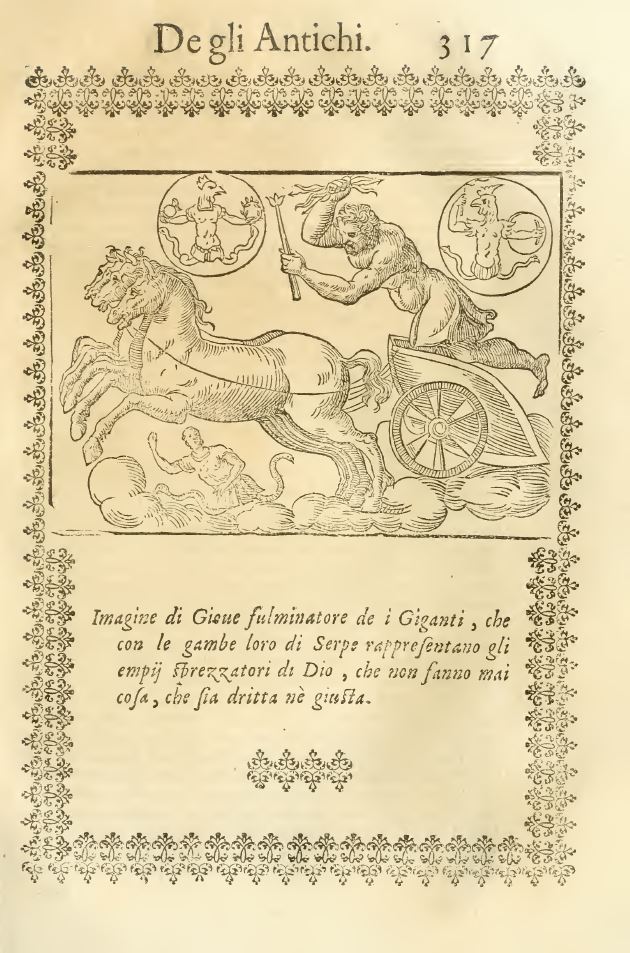 De gli Antichi. 317
Imagine di Gioue fulminatore de i Giganti, che
con le gambe loro di Serpe rappreſentano gli
empij ſprezzatori di Dio, che non fanno mai
coſa, che ſia dritta nè giuſta.